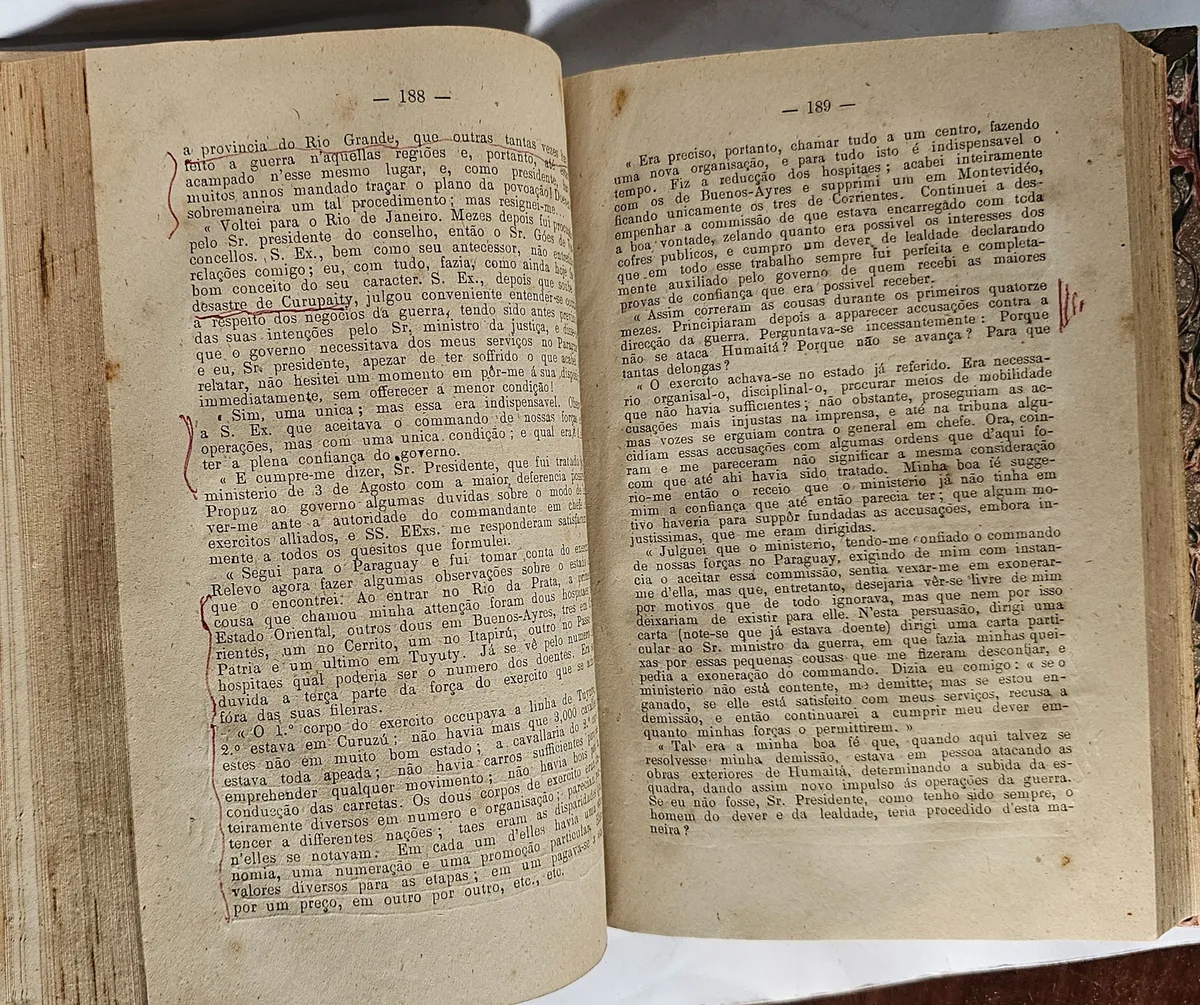 — 188 —
a provincia do Rio Grande, que outras tantas vezes
feito a guerra n'aquellas regiões e, portanto, até
acampado n'esse mesmo lugar, e, como presidente,
muitos annos mandado traçar o plano da povoação!
sobremaneira um tal procedimento; mas resignei-me...
« Voltei para o Rio de Janeiro. Mezes depois fui
pelo Sr. presidente do conselho, então o Sr. Góes de
concellos. S. Ex., bem como seu antecessor, não
relações comigo; eu, com tudo, fazia, como ainda hoje
bom conceito do seu caracter. S. Ex., depois que
desastre de Curupaity, julgou conveniente entender-se
a respeito dos negocios da guerra, tendo sido antes
das suas intenções pelo Sr. ministro da justiça, e
que o governo necessitava dos meus serviços no
e eu, Sr. presidente, apezar de ter soffrido o que
relatar, não hesitei um momento em pôr-me á sua
immediatamente, sem offerecer a menor condição!
« Sim, uma unica; mas essa era indispensavel.
a S. Ex. que aceitava o commando de nossas
operações, mas com uma unica condição; e qual era?
ter a plena confiança do governo.
« E cumpre-me dizer, Sr. Presidente, que fui
ministerio de 3 de Agosto com a maior deferencia
Propuz ao governo algumas duvidas sobre o modo de
ver-me ante a autoridade do commandante em
exercitos alliados, e SS. EExs. me responderam
mente a todos os quesitos que formulei.
« Segui para o Paraguay e fui tomar conta do
Relevo agora fazer algumas observações sobre o
que o encontrei. Ao entrar no Rio da Prata, a
cousa que chamou minha attenção foram dous
Estado Oriental, outros dous em Buenos-Ayres, tres em
rientes, um no Cerrito, um no Itapirú, outro no
Patria e um ultimo em Tuyuty. Já se vê pelo numero
hospitaes qual poderia ser o numero dos doentes.
duvida a terça parte da força do exercito que se
fóra das suas fileiras.
« O 1.º corpo do exercito occupava a linha de
2.º estava em Curuzú; não havia mais que 3,000
estes não em muito bom estado; a cavallaria do 2.º
estava toda apeada; não havia carros sufficientes
emprehender qualquer movimento; não havia bois
conducção das carretas. Os dous corpos de exercito
teiramente diversos em numero e organisação;
tencer a differentes nações; taes eram as disparidades
n'elles se notavam. Em cada um d'elles havia uma
nomia, uma numeração e uma promoção particular,
valores diversos para as etapas; em um pagava-se
por um preço, em outro por outro, etc., etc.
— 189 —
« Era preciso, portanto, chamar tudo a um centro, fazendo
uma nova organisação, e para tudo isto é indispensavel o
tempo. Fiz a reducção dos hospitaes; acabei inteiramente
com os de Buenos-Ayres e supprimi um em Montevidéo,
ficando unicamente os tres de Corrientes. Continuei a des-
empenhar a commissão de que estava encarregado com toda
a boa vontade, zelando quanto era possivel os interesses dos
cofres publicos, e cumpro um dever de lealdade declarando
que em todo esse trabalho sempre fui perfeita e completa-
mente auxiliado pelo governo de quem recebi as maiores
provas de confiança que era possivel receber.
« Assim correram as cousas durante os primeiros quatorze
mezes. Principiaram depois a apparecer accusações contra a
direcção da guerra. Perguntava-se incessantemente: Porque
não se ataca Humaitá? Porque não se avança? Para que
tantas delongas?
« O exercito achava-se no estado já referido. Era necessa-
rio organisal-o, disciplinal-o, procurar meios de mobilidade
que não havia sufficientes; não obstante, proseguiam as ac-
cusações mais injustas na imprensa, e até na tribuna algu-
mas vozes se erguiam contra o general em chefe. Ora, coin-
cidiam essas accusações com algumas ordens que d'aqui fo-
ram e me pareceram não significar a mesma consideração
com que até ahi havia sido tratado. Minha boa fé sugge-
rio-me então o receio que o ministerio já não tinha em
mim a confiança que até então parecia ter; que algum mo-
tivo haveria para suppôr fundadas as accusações, embora in-
justissimas, que me eram dirigidas.
« Julguei que o ministerio, tendo-me confiado o commando
de nossas forças no Paraguay, exigindo de mim com instan-
cia o aceitar essa commissão, sentia vexar-me em exonerar-
me d'ella, mas que, entretanto, desejaria vêr-se livre de mim
por motivos que de todo ignorava, mas que nem por isso
deixariam de existir para elle. N'esta persuasão, dirigi uma
carta (note-se que já estava doente) dirigi uma carta parti-
cular ao Sr. ministro da guerra, em que fazia minhas quei-
xas por essas pequenas cousas que me fizeram desconfiar, e
pedia a exoneração do commando. Dizia eu comigo: « se o
ministerio não está contente, me demitte; mas se estou en-
ganado, se elle está satisfeito com meus serviços, recusa a
demissão, e então continuarei a cumprir meu dever em-
quanto minhas forças o permittirem. »
« Tal era a minha boa fé que, quando aqui talvez se
resolvesse minha demissão, estava em pessoa atacando as
obras exteriores de Humaitá, determinando a subida da es-
quadra, dando assim novo impulso ás operações da guerra.
Se eu não fosse, Sr. Presidente, como tenho sido sempre, o
homem do dever e da lealdade, teria procedido d'esta ma-
neira?